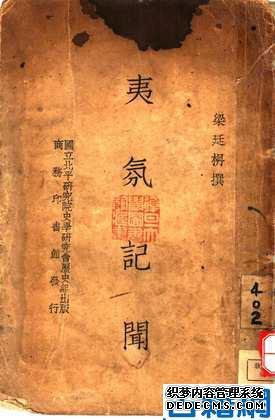 梁廷枏撰
夷氛記聞
國立北平研究院史學研究會歷史組出版
商務印書館發行
402
织梦内容管理系统
DEDECMS.COM